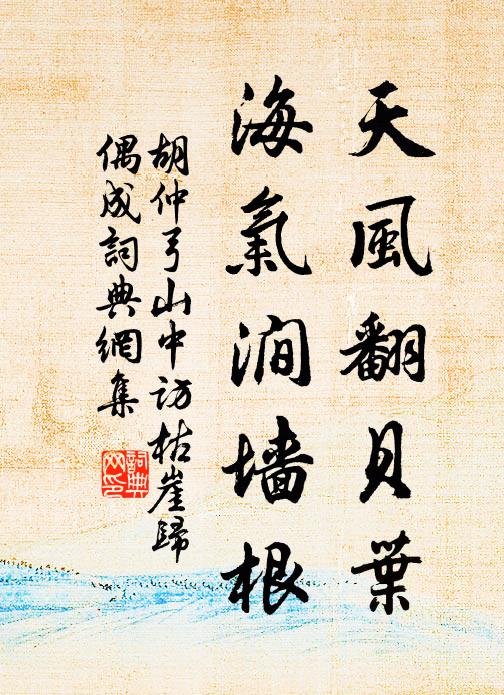 天風翻貝葉
海氣澗墙根
胡仲弓山中訪枯崖歸
偶成詞典網集
詞典
网印